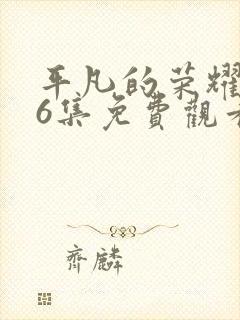 平凡的荣耀
6集免費觀看
齊麟